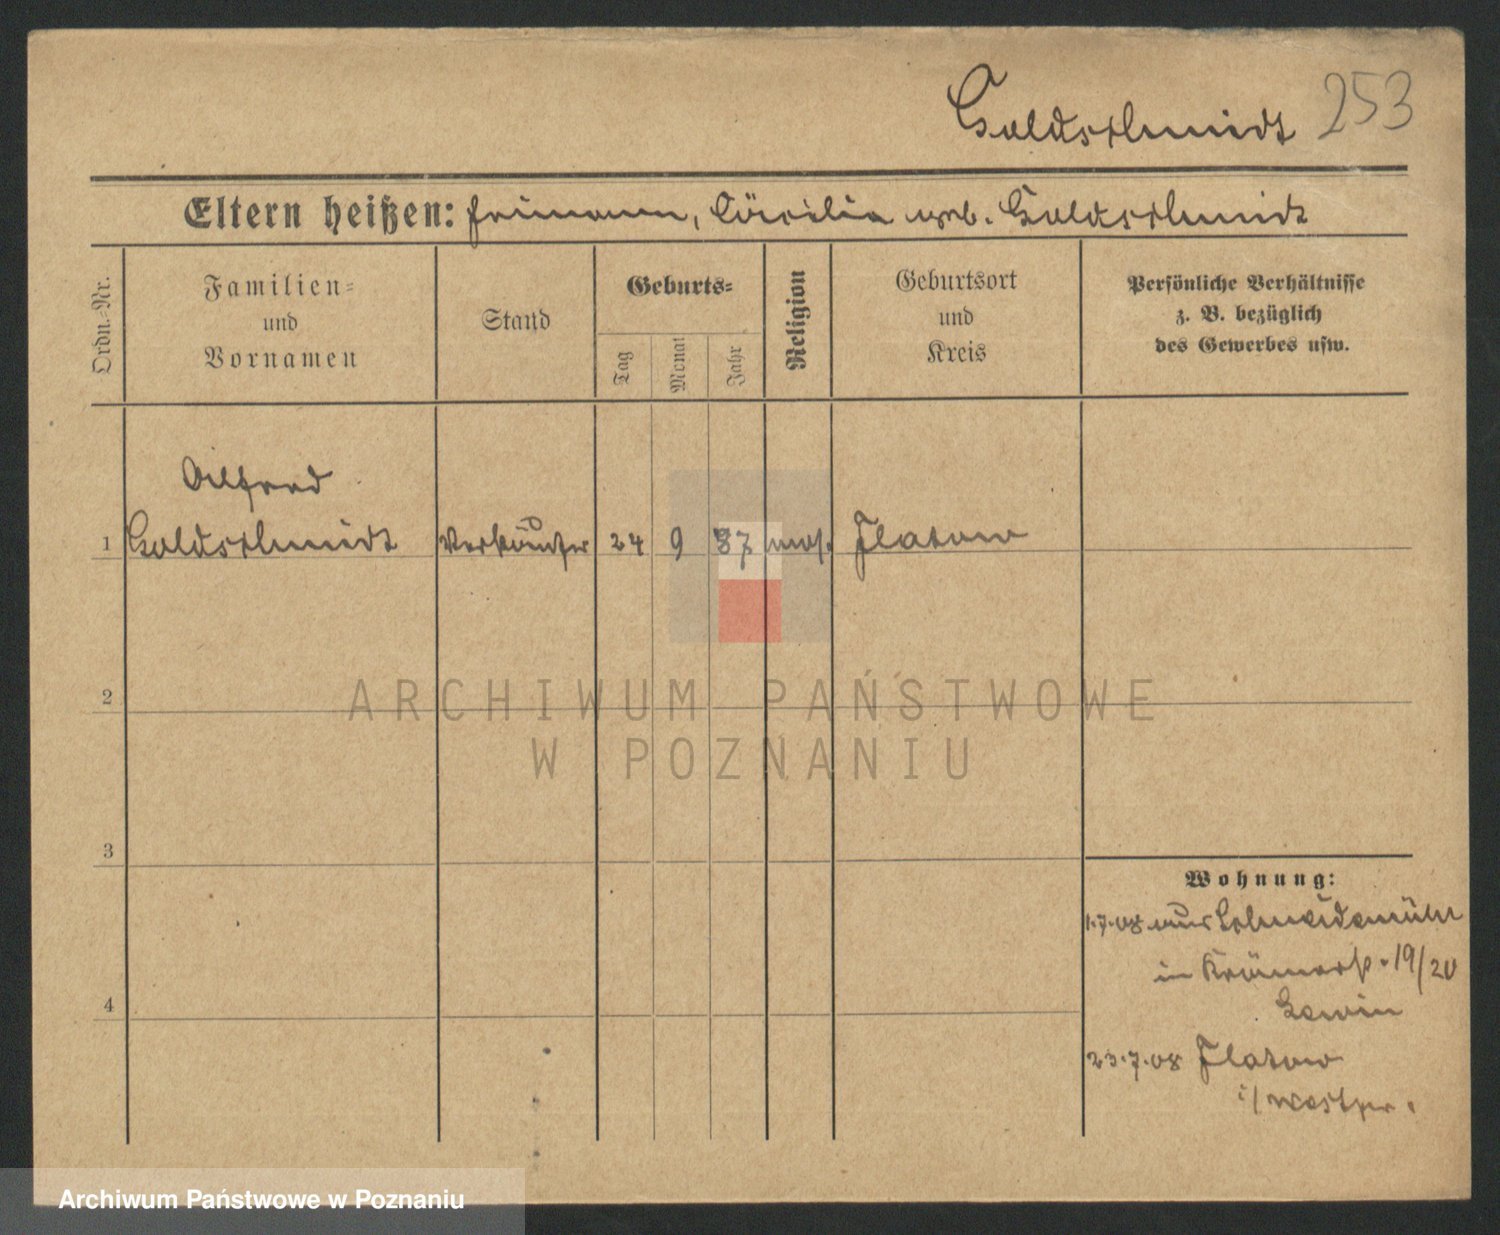 Goldschmidt 253
Eltern heißen: Heimann, Cäcilia geb. Goldschmidt
Ordn.-Nr.
Familien-
und
Vornamen
Stand
Geburts-
Tag
Monat
Jahr
Religion
Geburtsort
und
Kreis
Persönliche Verhältnisse
z. B. bezüglich
des Gewerbes usw.
Alfred
1 Goldschmidt Verkäufer 24 9 87 mos. Flatow
2
ARCHIWUM PAŃSTWOWE
W POZNANIU
3
Wohnung:
1.7.08 aus Schneidemühl
in Krämerstr. 19/20
Lewin
4
23.7.08 Flatow
i/ Westpr.
Archiwum Państwowe w Poznaniu